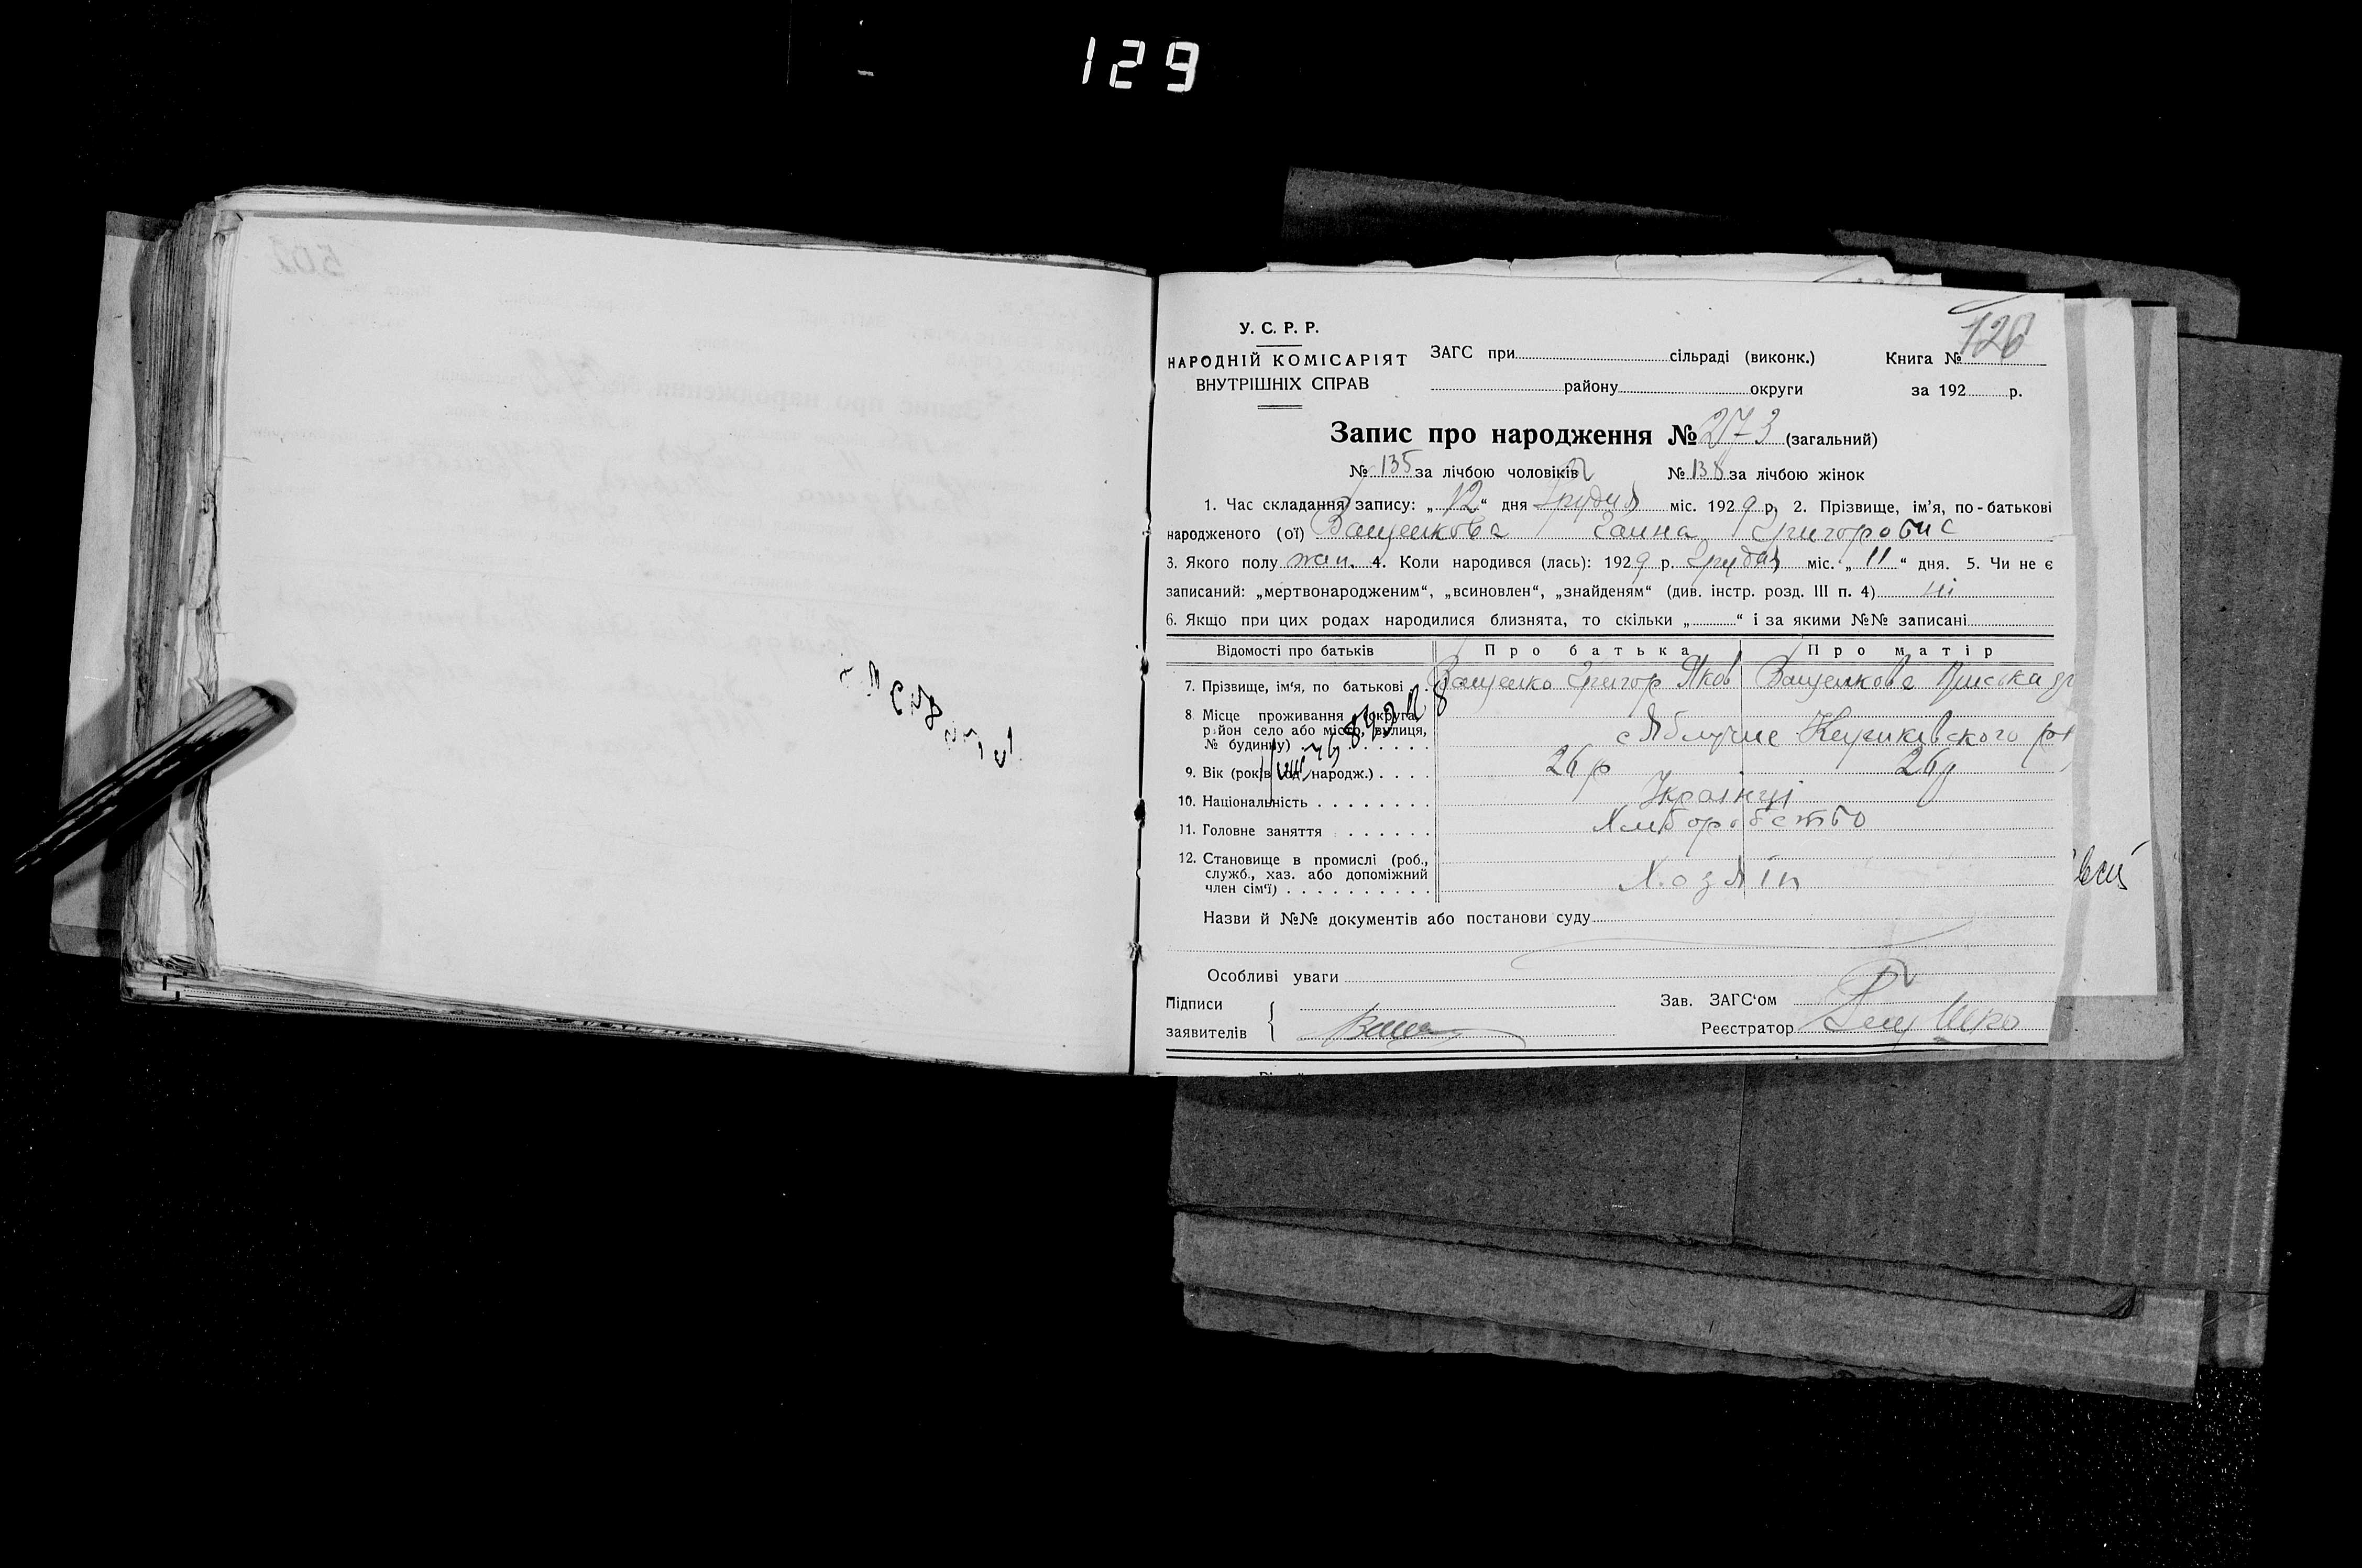 129
У. С. Р. Р.
НАРОДНІЙ КОМІСАРІЯТ
ВНУТРІШНІХ СПРАВ
ЗАГС при сільраді (виконк.)
району округи
Книга №
за 192 р.
128
Запис про народження № 273 (загальний)
№ 135 за лічбою чоловіків № 138 за лічбою жінок
1. Час складання запису: „ 12 “ дня Грудня міс. 1929 р. 2. Прізвище, ім'я, по-батькові
народженого (ої) Ващенкова Ганна Григоровис
3. Якого полу жін. 4. Коли народився (лась): 1929 р. Грудня міс. „ 11 “ дня. 5. Чи не є
записаний: „мертвонародженим“, „всиновлен“, „знайденям“ (див. інстр. розд. III п. 4) ні
6. Якщо при цих родах народилися близнята, то скільки „ “ і за якими №№ записані
Відомості про батьків Про батька Про матір
7. Прізвище, ім'я, по батькові Ващенко Григор Яков Ващенкова
8. Місце проживання (округа,
район село або місто, вулиця,
№ будинку)
с Яблучне
9. Вік (років од народж.) 26 р 26 р
10. Національність Українці
11. Головне заняття Хліборобство
12. Становище в промислі (роб.,
служб., хаз. або допоміжний
член сім'ї) Хозяін
Назви й №№ документів або постанови суду
Особливі уваги
Підписи
заявителів
Зав. ЗАГС'ом
Реєстратор